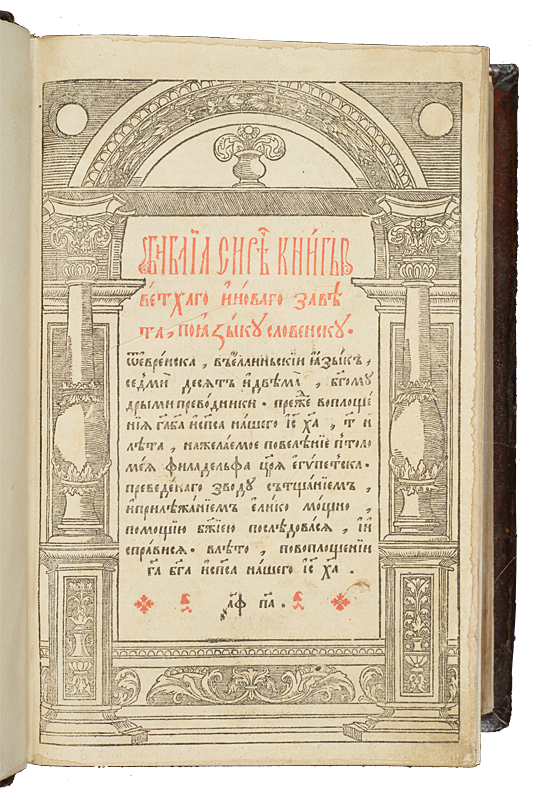 Библіа сирѣ книгы
ветхаго и новаго завѣ
та, поꙗзыку словенску.
ѿеврейска, въеллиньскїи ꙗзыкъ,
седмїю десятъ идвѣма, б҃гому
дрыми преводники. преже воплоще
нїя га҃ба҃ и сп҃са нашего іс҃ ха҃, т҃ и
лѣта, нажелаемое повелѣнїе птоло
мея филаделфа царя египетска.
преведенаго зводу сътщанїемъ,
иприлѣжанїемъ елико мощно,
помощїю бж҃їею послѣдовася, ии
справися. влѣто, повоплощенїи
га҃ ба҃ и сп҃са нашего іс҃ ха҃.
҂аф҃ па҃.